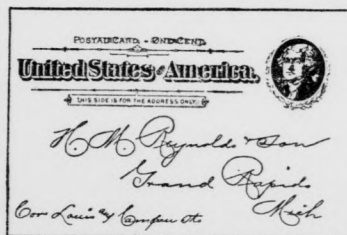 POSTAL CARD - ONE CENT.
United States of America.
THIS SIDE IS FOR THE ADDRESS ONLY.
H. M. Reynolds & Son
Grand Rapids
Mich
Cor Louis & Campau sts